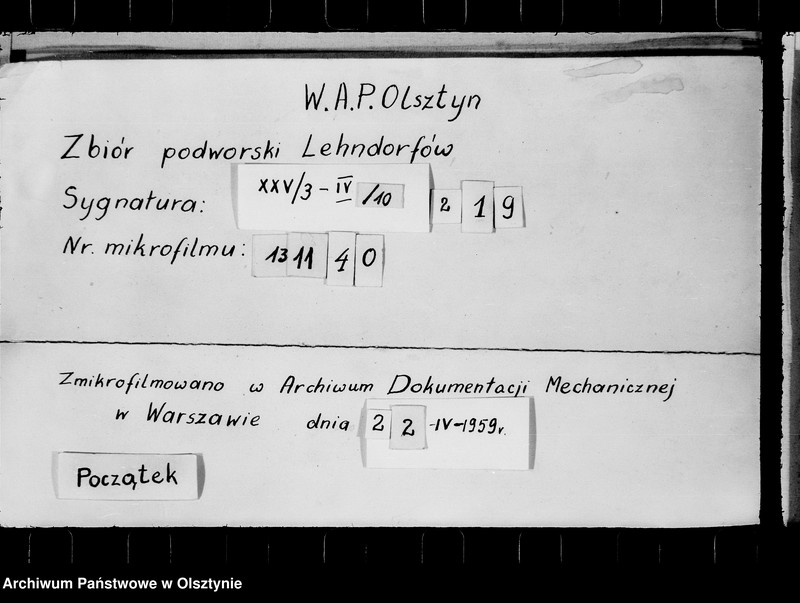 W.A.P. Olsztyn
Zbiór podworski Lehndorfów
Sygnatura: XXV/3 - IV /10 2 1 9
Nr. mikrofilmu: 13 11 4 0
Zmikrofilmowano w Archiwum Dokumentacji Mechanicznej
w Warszawie dnia 2 2 -IV-1959r.
Początek
Archiwum Państwowe w Olsztynie